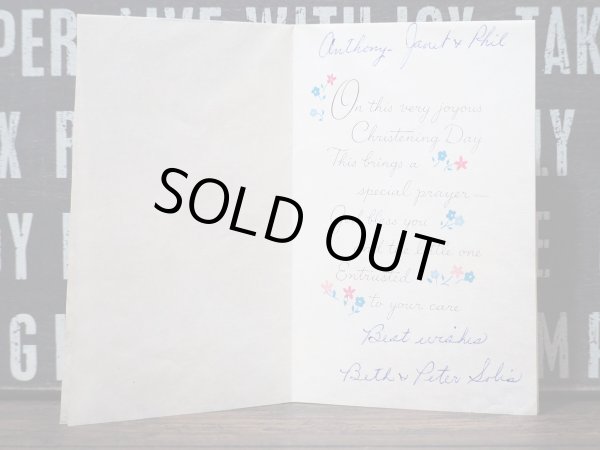 PER LIVE WITH JOY, TAK
Anthony, Janet & Phil
On this very joyous
Christening Day
This brings a
special prayer—
bless you
the little one
Entrusted
to your care
Best wishes
Beth & Peter Solis
SOLD OUT